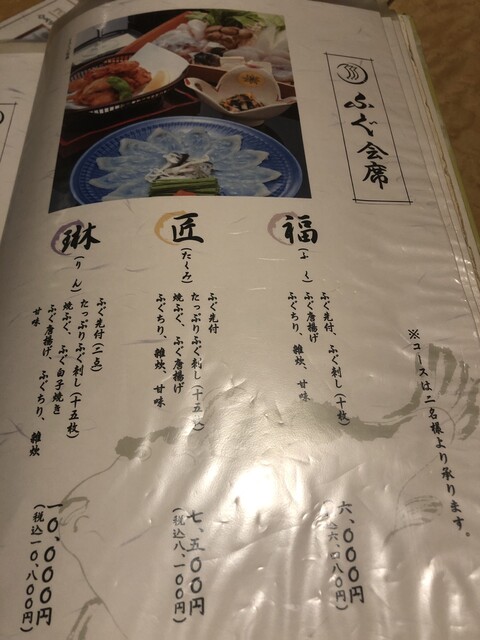 ふぐ会席
※コースは二名様より承ります。
福
(ふく)
ふぐ先付、ふぐ刺し(十枚)
ふぐ唐揚げ
ふぐちり、雑炊、甘味
六、〇〇〇円
(税込六、四八〇円)
匠
(たくみ)
ふぐ先付
たっぷりふぐ刺し(十五枚)
焼ふぐ、ふぐ唐揚げ
ふぐちり、雑炊、甘味
七、五〇〇円
(税込八、一〇〇円)
琳
(りん)
ふぐ先付(二点)
たっぷりふぐ刺し(十五枚)
焼ふぐ、ふぐ白子焼き
ふぐ唐揚げ、ふぐちり、雑炊
甘味
一〇、〇〇〇円
(税込一〇、八〇〇円)